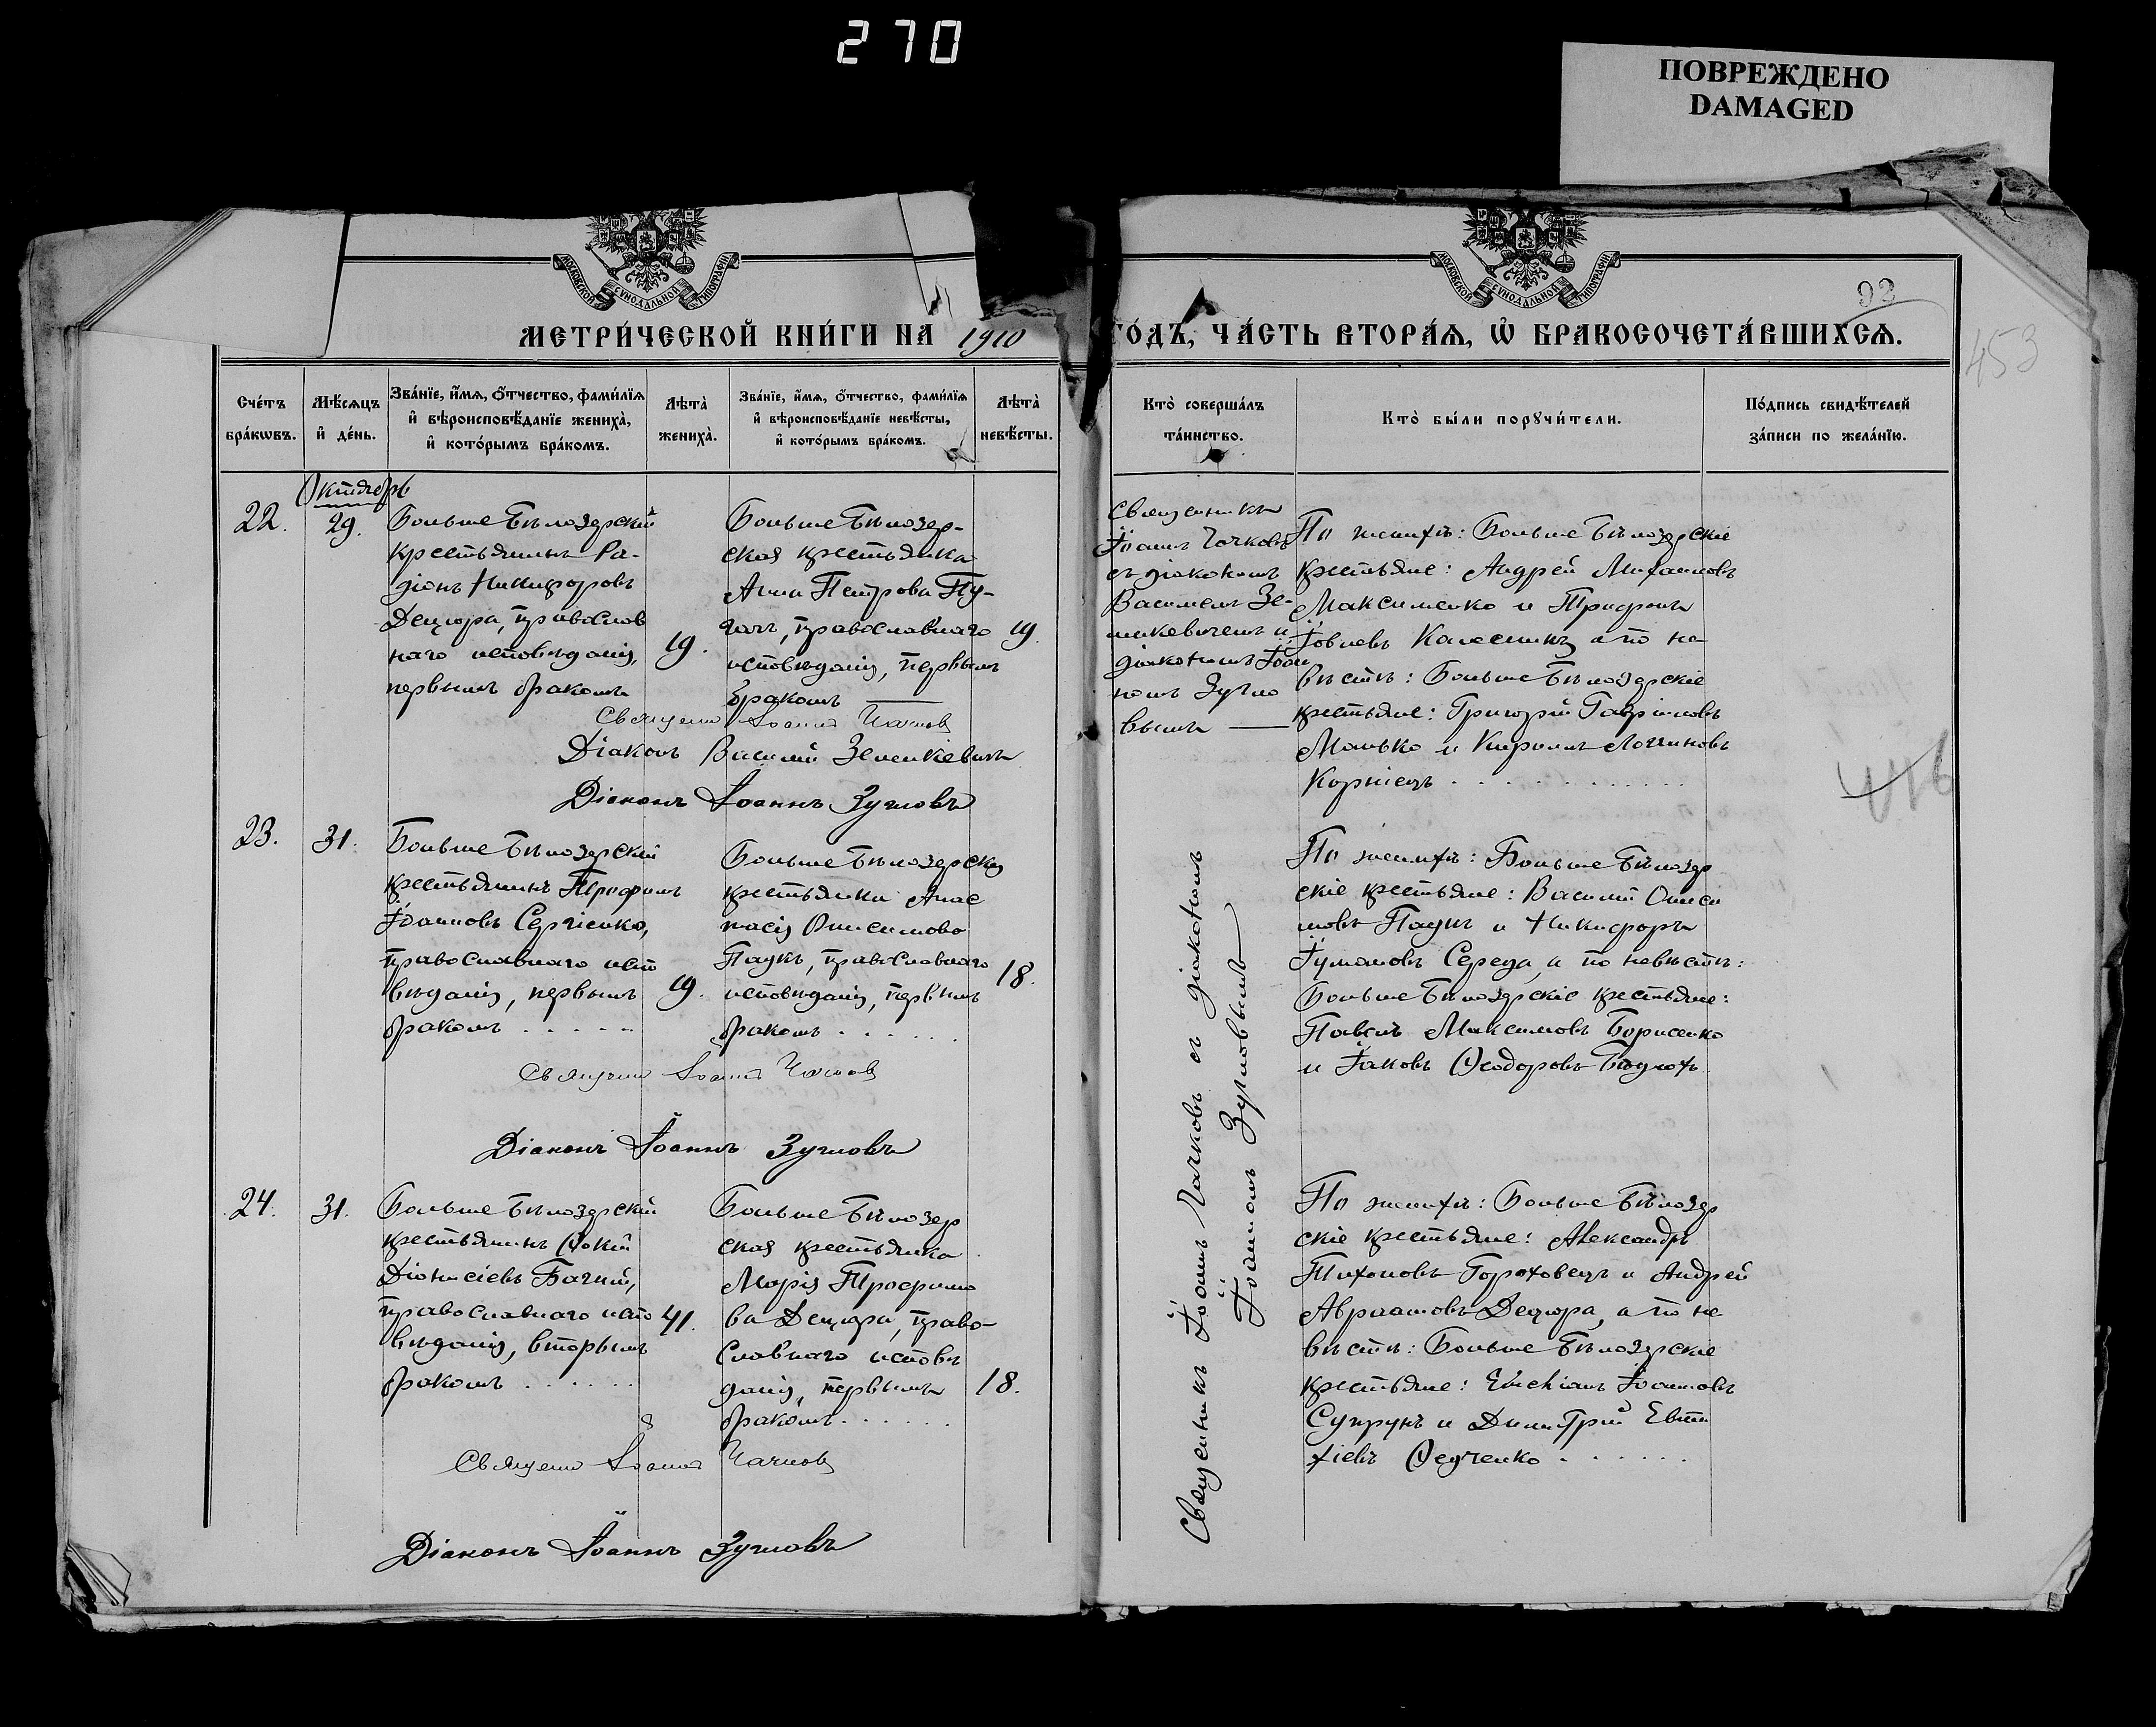 270
ПОВРЕЖДЕНО
DAMAGED
МОСКОВСКОЙ СУНОДАЛЬНОЙ ТИПОГРАФІИ
МОСКОВСКОЙ СУНОДАЛЬНОЙ ТИПОГРАФІИ
93
453
МЕТРИ́ЧЕСКОЙ КНИ́ГИ НА 1910 ГО́ДЪ, ЧА́СТЬ ВТОРА́Я, Ѡ҆ БРАКОСОЧЕТА́ВШИХСЯ.
Сче́тъ
бра́кωвъ.
Мѣ́сяцъ
и҆ де́нь.
Зва́нїе, и҆́мя, о҆́тчество, фами́лїя
и҆ вѣроисповѣ́данїе жениха̀,
и҆ кото́рымъ бра́комъ.
Лѣта̀
жениха̀.
Зва́нїе, и҆́мя, о҆́тчество, фами́лїя
и҆ вѣроисповѣ́данїе невѣ́сты,
и҆ кото́рымъ бра́комъ.
Лѣта̀
невѣ́сты.
Кто̀ соверша́лъ
та́инство.
Кто̀ бы́ли порꙋчи́тели.
По́дпись свидѣ́телей
за́писи по жела́нїю.
Октябрь
22.
29.
Больше Бѣлозерскій
крестьянинъ Ра-
діонъ Никифоровъ
Децюра, православ
наго исповѣданія,
первымъ бракомъ
19.
Больше Бѣлозер-
ская крестьянка
Анна Петрова Пу-
гачъ, православнаго
исповѣданія, первымъ
бракомъ
19.
Священникъ
Іоаннъ Чачковъ
съ діакономъ
Василіемъ Зе-
ленкевичемъ и
діакономъ Іоан
номъ Зугло
вымъ
По женихѣ: Больше Бѣлозерскіе
крестьяне: Андрей Михаиловъ
Максименко и Трифонъ
Іовлевъ Калесникъ а по не
вѣстѣ: Больше Бѣлозерскіе
крестьяне: Григорій Гавріиловъ
Малько и Кириллъ Логгиновъ
Корніецъ
Священ Іоаннъ Чачков
Діаконъ Василій Зеленкевичъ
Діаконъ Іоаннъ Зугловъ
446
23.
31.
Больше Бѣлозерскій
крестьянинъ Трофимъ
Іоанновъ Сергіенко,
православнаго испо
вѣданія, первымъ
бракомъ
19.
Больше Бѣлозерская
крестьянка Анас
тасія Онисимова
Паукъ, православнаго
исповѣданія, первымъ
бракомъ
18.
По женихѣ: Больше Бѣлозер
скіе крестьяне: Василій Ониси
мовъ Паукъ и Никифоръ
Середа, а по невѣстѣ:
Больше Бѣлозерскіе крестьяне:
Павелъ Максимовъ Борисенко
и Іаковъ Ѳеодоровъ
Священ Іоаннъ Чачков
Діаконъ Іоаннъ Зугловъ
Священникъ Іоаннъ Чачковъ съ діакономъ
Іоанномъ Зугловымъ
24.
31.
Больше Бѣлозерскій
крестьянинъ Ѳокій
Діонисіевъ Бачкій,
православнаго испо
вѣданія, вторымъ
бракомъ
41.
Больше Бѣлозер
ская крестьянка
Марія Трофимо
ва Децюра, право-
славнаго исповѣ
данія, первымъ
бракомъ
18.
По женихѣ: Больше Бѣлозер
скіе крестьяне: Александръ
Тихоновъ Гороховецъ и Андрей
Авраамовъ Децюра, а по не
вѣстѣ: Больше Бѣлозерскіе
крестьяне: Іоанновъ
Супрунъ и Димитрій Евти
хіевъ Ѳедченко
Священ Іоаннъ Чачков
Діаконъ Іоаннъ Зугловъ